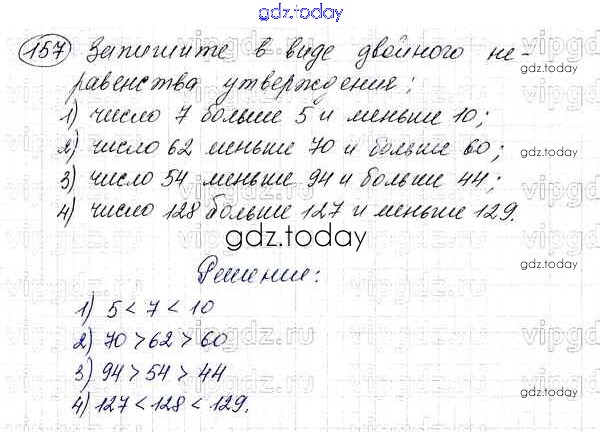 gdz.today
157 Запишите в виде двойного не-
gdz.today
равенства утверждения:
1) число 7 больше 5 и меньше 10;
gdz.today
2) число 62 меньше 70 и больше 60;
gdz.today
3) число 54 меньше 94 и больше 44;
vipgdz.ru
4) число 128 больше 127 и меньше 129.
gdz.today
gdz.today
Решение:
gdz.today
1) 5 < 7 < 10
2) 70 > 62 > 60
gdz.today
3) 94 > 54 > 44
gdz.today
4) 127 < 128 < 129.